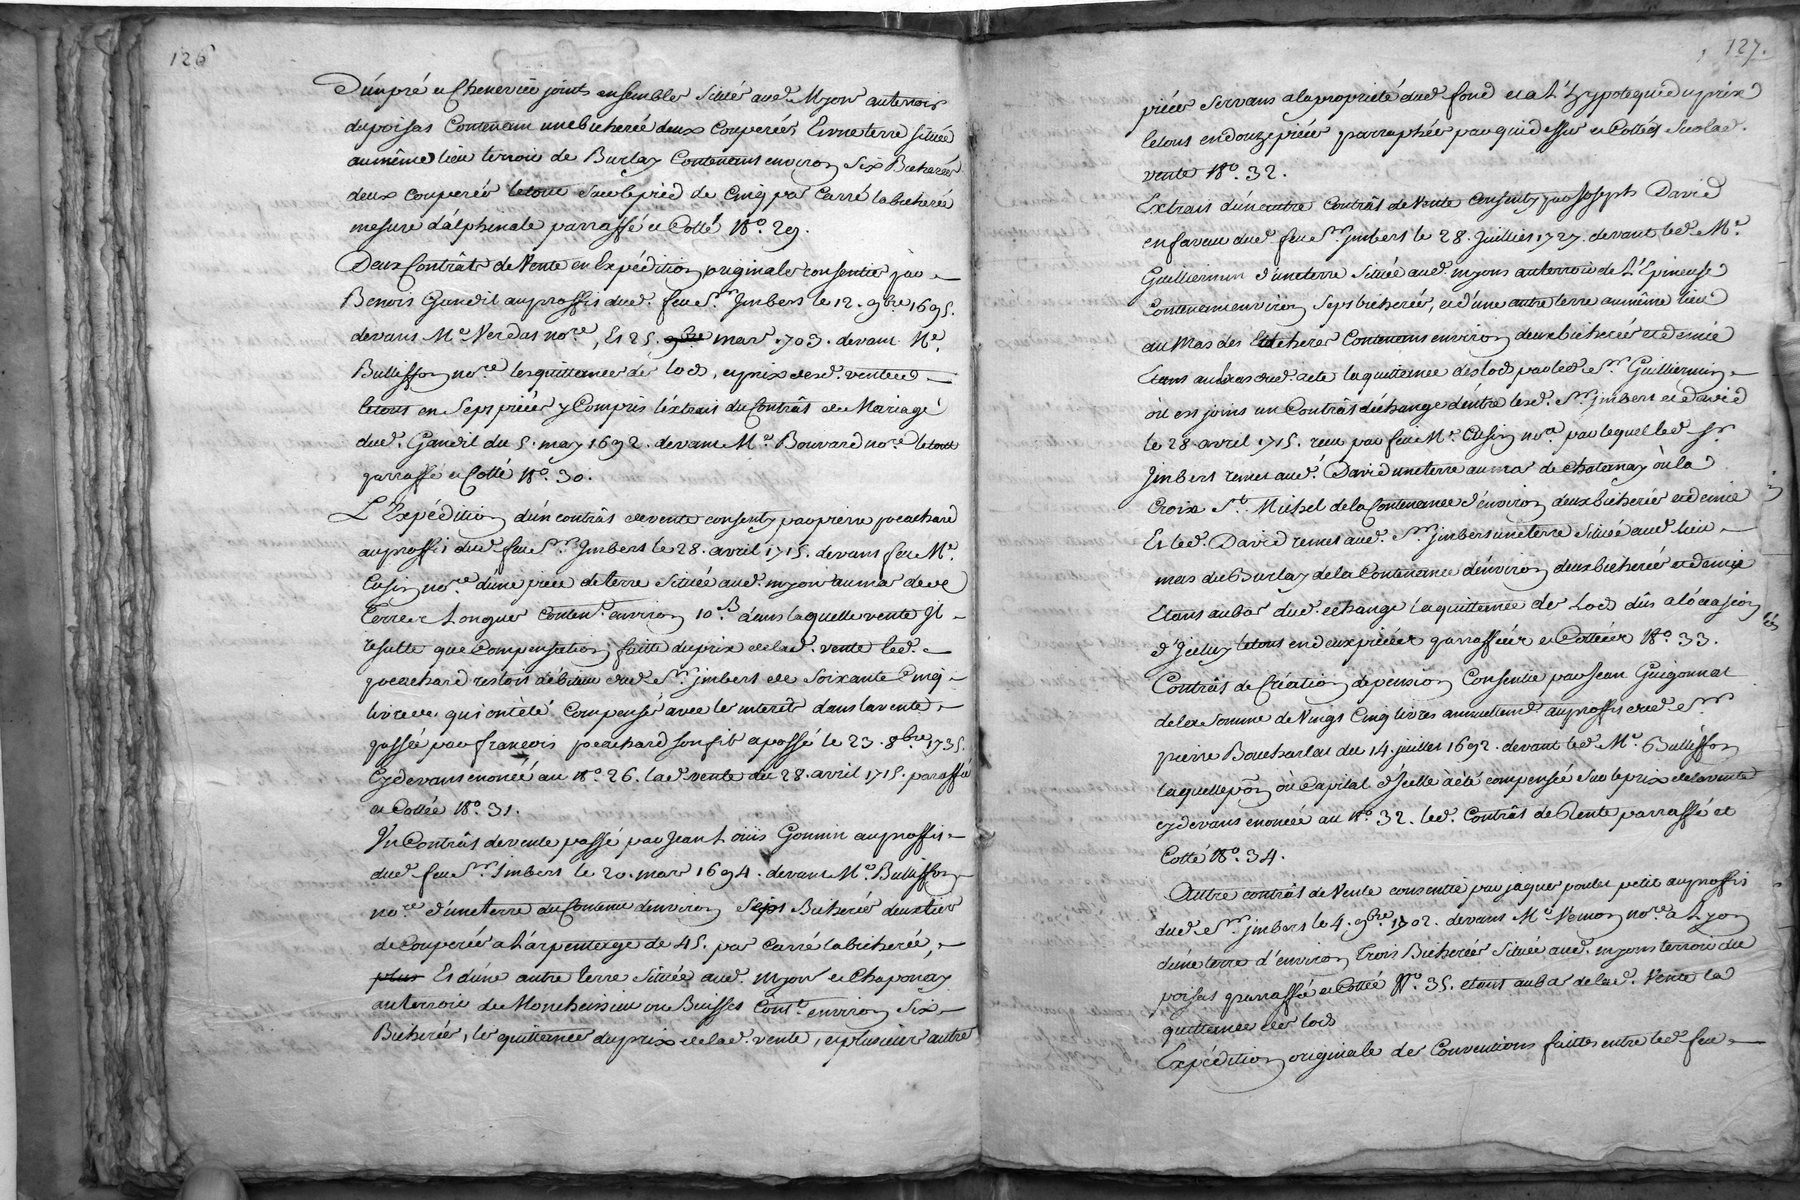 126
D'un pré et Cheneviere joints ensembles Situés aud. Myons au terroir
du poisas Contenant une bicherée deux Couperées, Et une terre située
au même lieu terroir de Burlay Contenant environ Six Bicherées
deux couperées letout sur le pied de Cinq pas Carré la bicherée
mesure d'alphinale parraffé et Cotté N.o 29.
Deux Contrâts de Vente en Expédition originale consenties par
Benoit Gandil au proffit dud. feu S.r Jmbert le 12. 9bre 1695.
devant M.e Verdat no.re, Et 25. mars 1703. devant M.e
Bulliffon no.re les quittances des lods, et prix desd. ventes
letout en Sept piéces y Compris l'extrait du Contrât de Mariage
dud. Gandil du 5. may 1692. devant M.e Bouvard no.re letout
parraffé et Cotté N.o 30.
L'Expédition d'un contrât de vente consenty par pierre pocachard
au proffit dud. feu S.r Jmbert le 28. avril 1715. devant feu M.e
Cusin no.re d'une piece de terre Située aud. myons au mas de
Terres Longues Conten.t environ 10.B dans laquelle vente Il
résulte que Compensation faitte du prix de lad. vente led.
pocachard restoit débiteur dud. S.r jmbert de Soixante Cinq
livres qui ont été Compensé avec les interets dans la vente
passée par françois pocachard son fils a passé le 23. 8bre 1735.
Cydevant énoncée au N.o 26. lad. vente du 28. avril 1715. paraffé
et Cottée N.o 31.
Un Contrât de vente passé par Jean Loüis Gonnin au proffit
dud. feu S.r Jmbert le 20. mars 1694. devant M.e Bulliffon
no.re d'une terre du Contenu d'environ Sept Bicherées deux tiers
de Couperées a L'arpentage de 45. pas Carré la bicherée,
plus Et d'une autre terre Située aud. Myons et Chaponay
au terroir de Moncheissieu ou Buisses Cont.t environ Six
Bicherées, les quittances du prix de lad. vente, et plusieurs autre
127.
piéces Servans a la proprieté dud. fond et a L'hypoteque du prix
letout en douze piéces parraphées par qui dessus et Cottés Sur lad.
vente N.o 32.
Extrait d'un autre Contrât de Vente consenty par Joseph David
en faveur dud. feu S.r jmbert le 28. Juillet 1727. devant led. M.e
Guilliermin d'une terre Située aud. myons au terroir de L'Epineuse
Contenant environ Sept bicherées, et d'une autre terre au même lieu
au Mas des Contenant environ deux bicherées et demie
Etant au bas dud. acte la quittance des lods par led. S.r Guilliermin
où est joint un Contrât d'échange d'entre led. S.r jmbert et david
le 28. avril 1715. reçu par feu M.e Cusin no.re par lequel led. S.r
Jmbert remet aud. David une terre au mas de chatanay où la
Croix S.t Michel de la Contenance d'environ deux bicherées et demie
Et led. David remet aud. S.r jmbert une terre Située aud. lieu
mas du Burlay de la Contenance d'environ deux bicherées et demie
Etant au bas dud. echange la quittance des Lods dûs a l'ócasion
d'Jceluy letout en deux piéces parraffées et Cottées N.o 33.
Contrât de Création de pension Consentie par Jean Guigonnat
de la Somme de Vingt Cinq livres annuellem.t au proffit dud. S.r
pierre Boucharlat du 14. juillet 1692. devant led. M.e Bulliffon
laquelle p.on où Capital d'Jcelle a été compensée Sur le prix de la vente
cydevant énoncée au N.o 32. led. Contrât de Rente parraffé et
Cotté N.o 34.
Autre contrât de Vente consentie par jaques poulet petit au proffit
dud. S.r jmbert le 4. 9bre 1702. devant M.e Vernon no.re a Lyon
d'une terre d'environ Trois Bicherées Située aud. myons terroir du
poisas parraffé et Cotté N.o 35. etant au bas de lad. Vente la
quittance des lods
Expédition originale des Conventions faittes entre led. feu